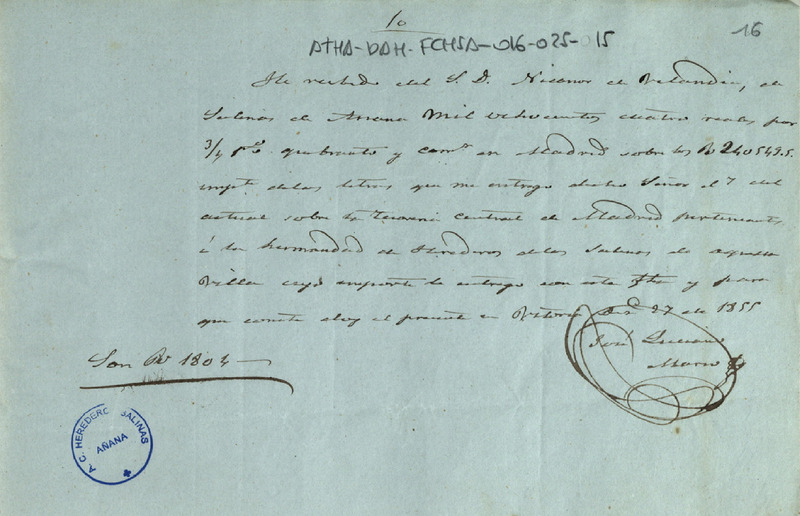 10
16
ATHA-DAH-FCHSA-016-025-015
He recibido del S. D. Nicanor de Velandia, de
Salinas de Añana Mil ochocientos cuatro reales por
3/4 p.% quebranto y com.n en Madrid sobre los Rv 240549.5.
impte de las letras que me entrego dicho Señor el 7 del
actual sobre la Tesoreria central de Madrid pertenecientes
á la hermandad de Herederos de las Salinas de aquella
Villa cuyo importe le entrego con esta fha y para
que conste doy el presente en Vitoria 27 de 1855
José Luciano
Son Rv 1804
A.C. HEREDEROS SALINAS
AÑANA